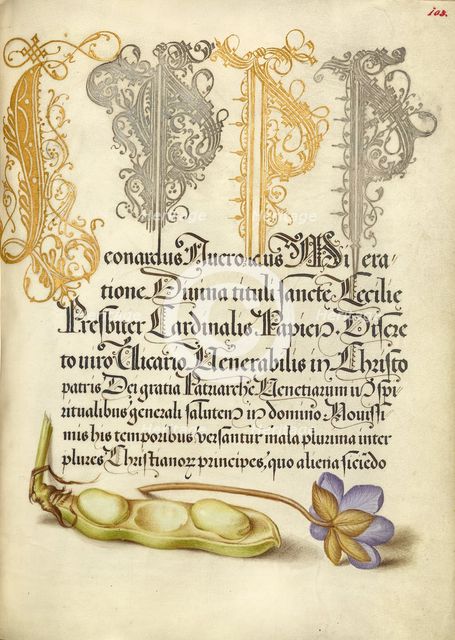 103.
L P P P
eonardus Nucronicus Misera/
tione Divina tituli sancte Cecilie
Presbiter Cardinalis Papien. Discre
to viro Vicario Venerabilis in Christo
patris Dei gratia Patriarche Venetiarum in Spi
ritualibus generali salutem in domino Novissi
mis his temporibus versantur mala plurima inter
plures Christianor principes, quo aliena
Heritage
Images